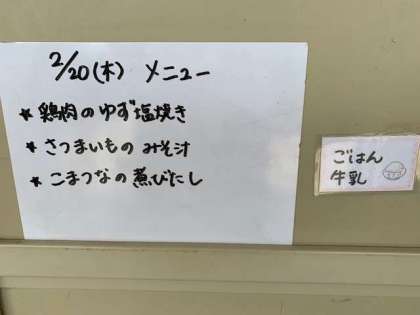 2/20(木) メニュー
★ 鶏肉のゆず塩焼き
★ さつまいもの みそ汁
★ こまつなの煮びたし
ごはん
牛乳